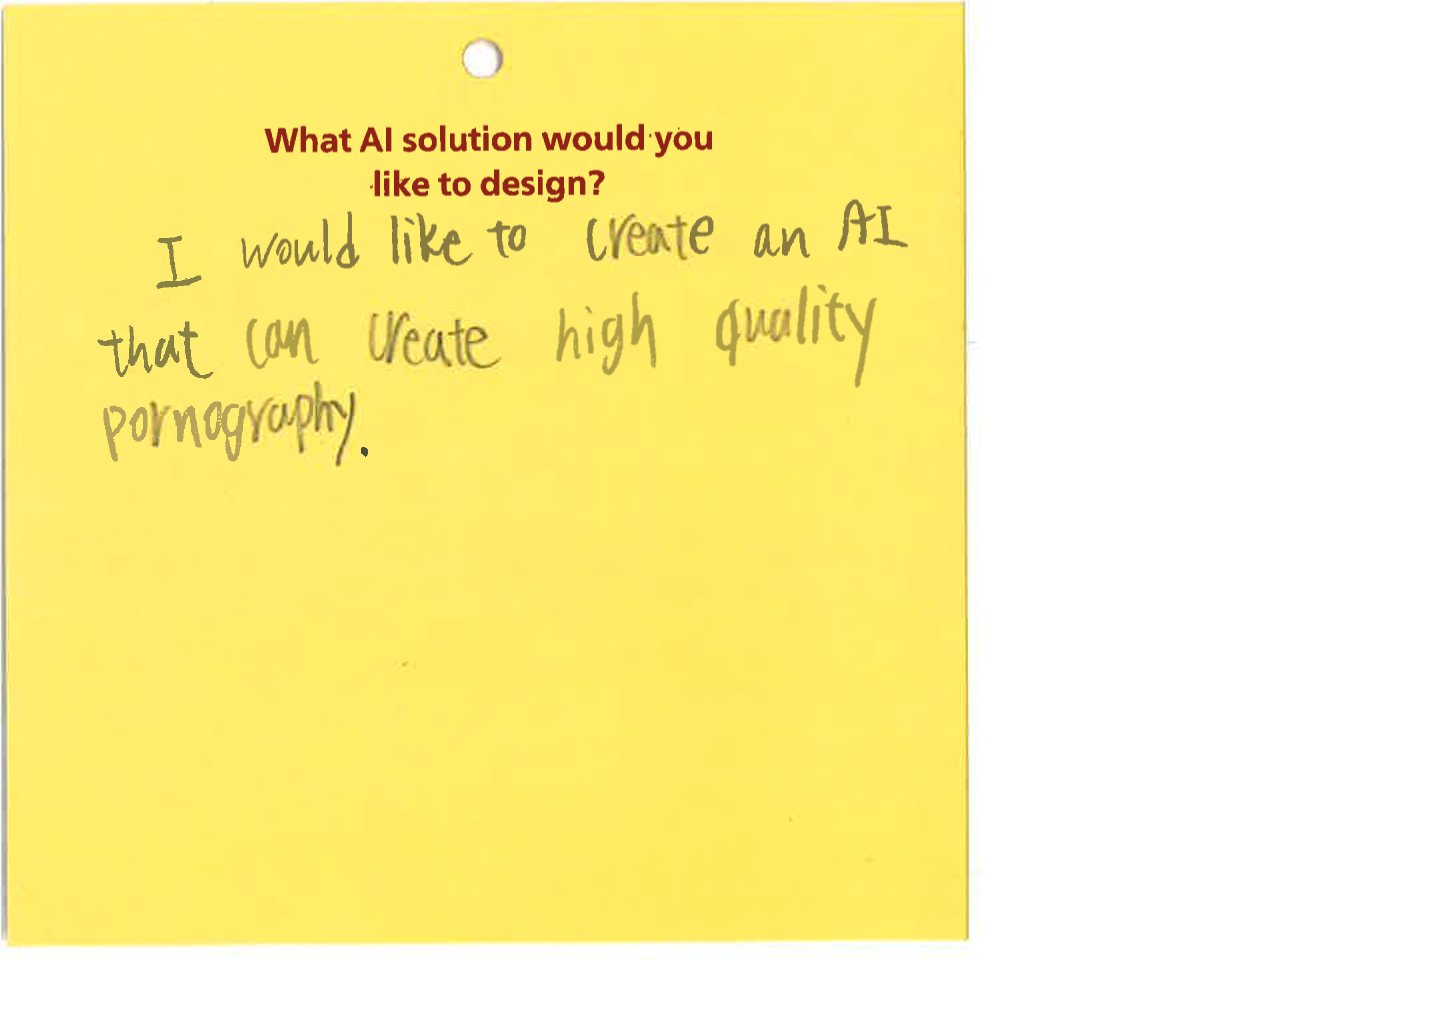 What AI solution would you
like to design?
I would like to create an AI
that can create high quality
pornography.